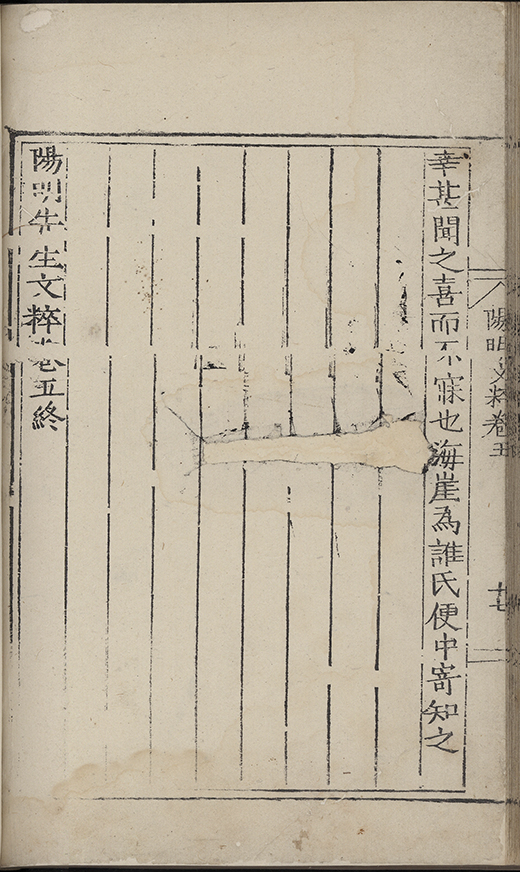 幸甚聞之喜而不寐也海崖為誰氏便中寄知之
陽明先生文粹卷五終
陽明文粹卷五
十七